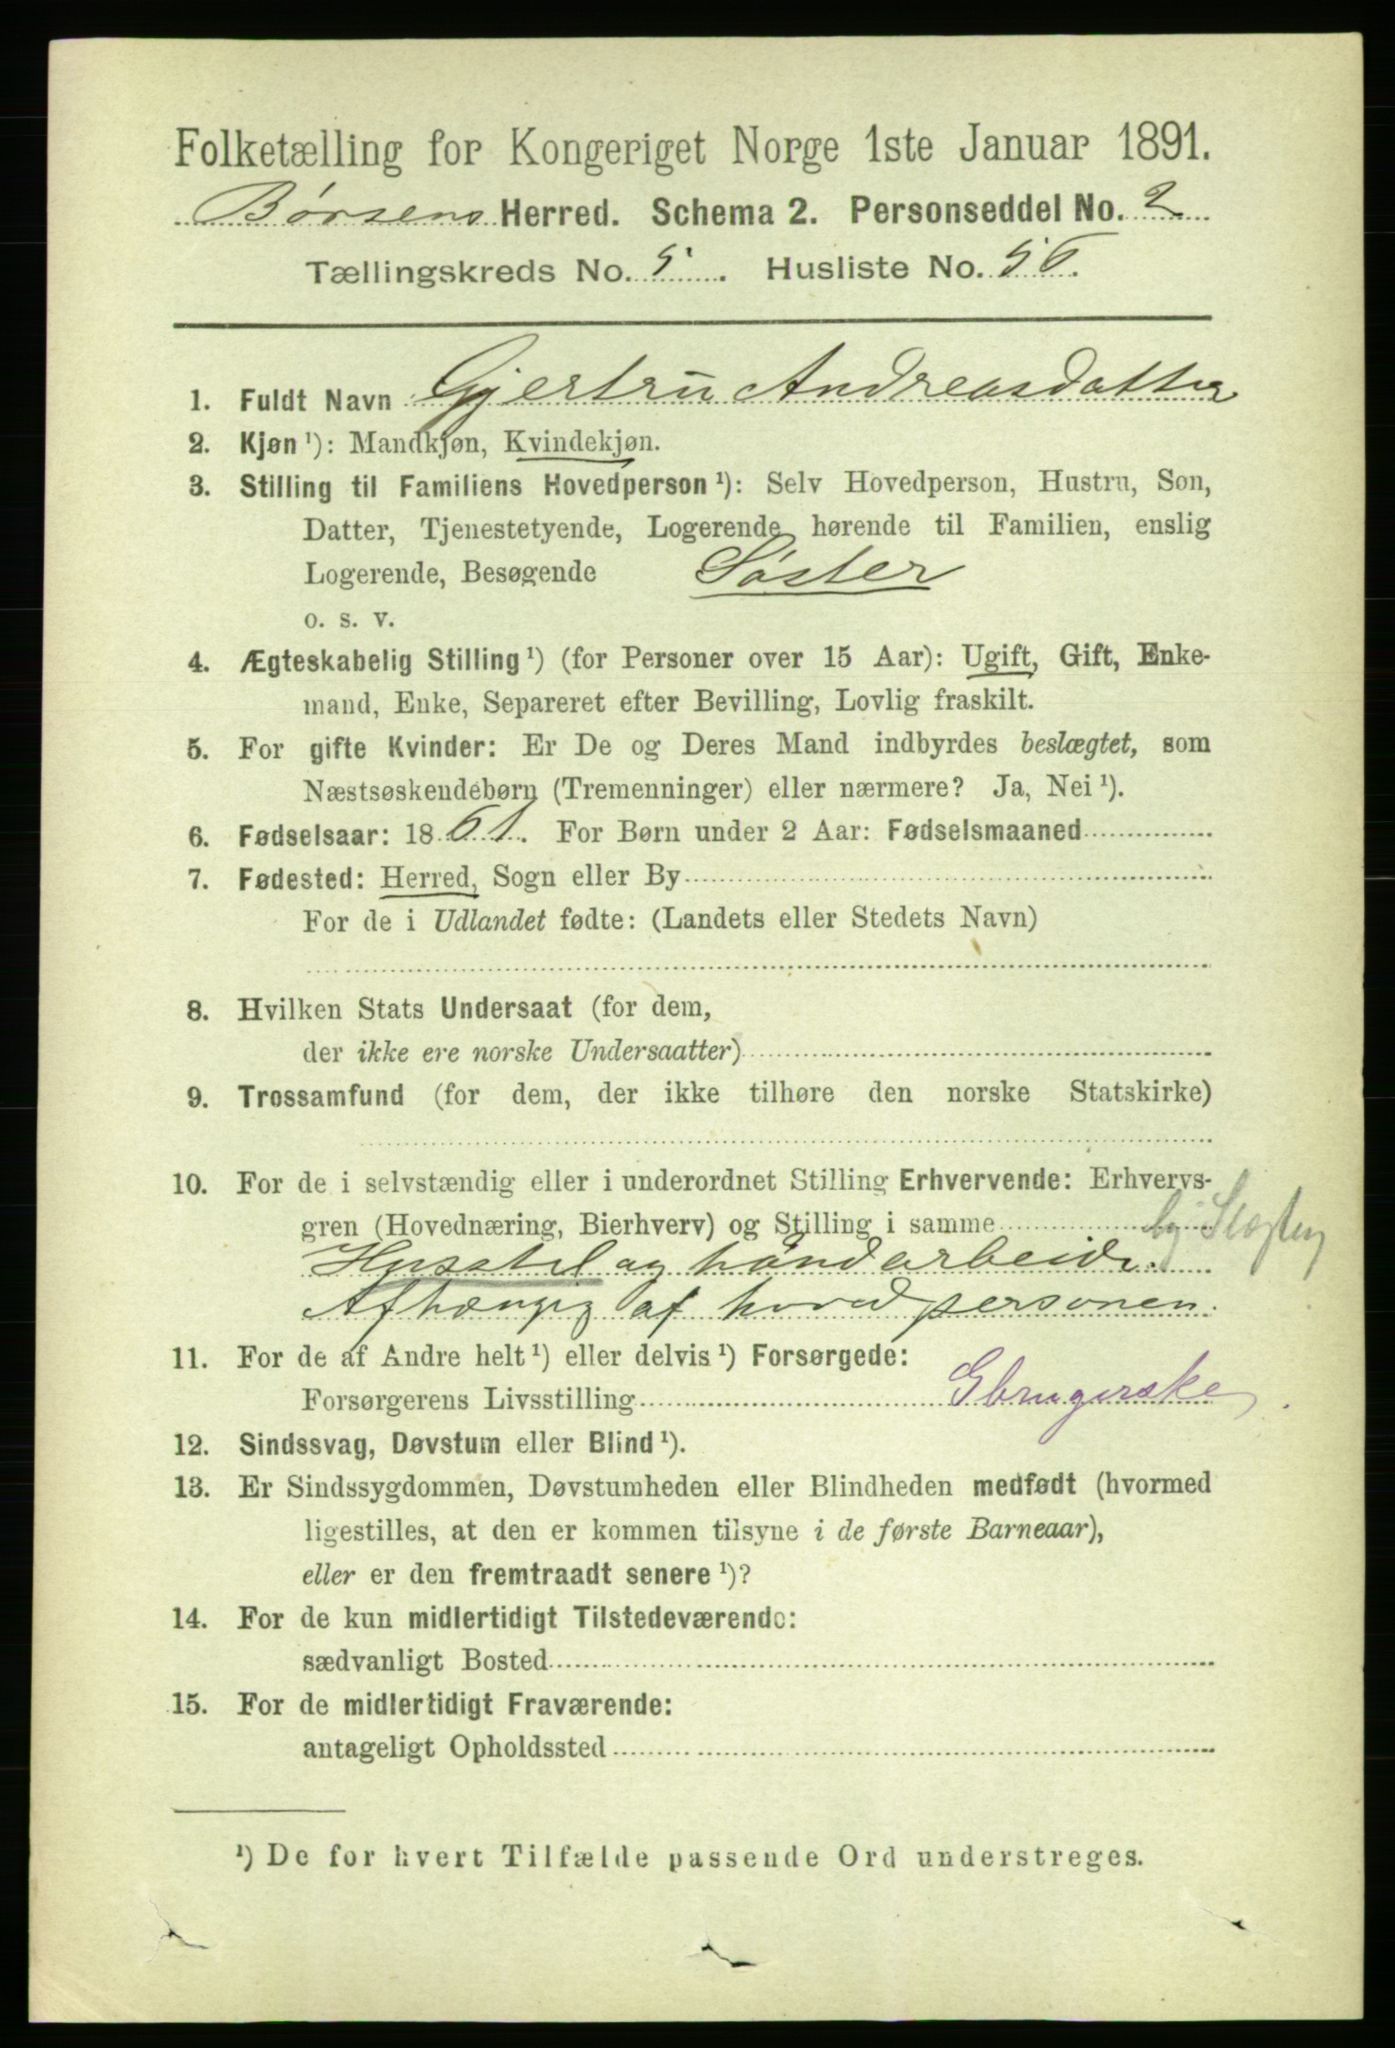 Folketælling for Kongeriget Norge 1ste Januar 1891.
Børsens Herred. Schema 2. Personseddel No. 2
Tællingskreds No. 5. Husliste No. 56.
1. Fuldt Navn Gjertru Andreasdatter
2. Kjøn ¹): Mandkjøn, Kvindekjøn.
3. Stilling til Familiens Hovedperson ¹): Selv Hovedperson, Hustru, Søn,
Datter, Tjenestetyende, Logerende hørende til Familien, enslig
Logerende, Besøgende Søster
o. s. v.
4. Ægteskabelig Stilling ¹) (for Personer over 15 Aar): Ugift, Gift, Enke-
mand, Enke, Separeret efter Bevilling, Lovlig fraskilt.
5. For gifte Kvinder: Er De og Deres Mand indbyrdes beslægtet, som
Næstsøskendebørn (Tremenninger) eller nærmere? Ja, Nei ¹).
6. Fødselsaar: 1861. For Børn under 2 Aar: Fødselsmaaned
7. Fødested: Herred, Sogn eller By
For de i Udlandet fødte: (Landets eller Stedets Navn)
8. Hvilken Stats Undersaat (for dem,
der ikke ere norske Undersaatter)
9. Trossamfund (for dem, der ikke tilhøre den norske Statskirke)
10. For de i selvstændig eller i underordnet Stilling Erhvervende: Erhvervs-
gren (Hovednæring, Bierhverv) og Stilling i samme
Husstel og håndarbeide.
Afhængig af hovedpersonen.
11. For de af Andre helt ¹) eller delvis ¹) Forsørgede:
Forsørgerens Livsstilling Gbrugerske
12. Sindssvag, Døvstum eller Blind ¹).
13. Er Sindssygdommen, Døvstumheden eller Blindheden medfødt (hvormed
ligestilles, at den er kommen tilsyne i de første Barneaar),
eller er den fremtraadt senere ¹)?
14. For de kun midlertidigt Tilstedeværende:
sædvanligt Bosted
15. For de midlertidigt Fraværende:
antageligt Opholdssted
¹) De for hvert Tilfælde passende Ord understreges.